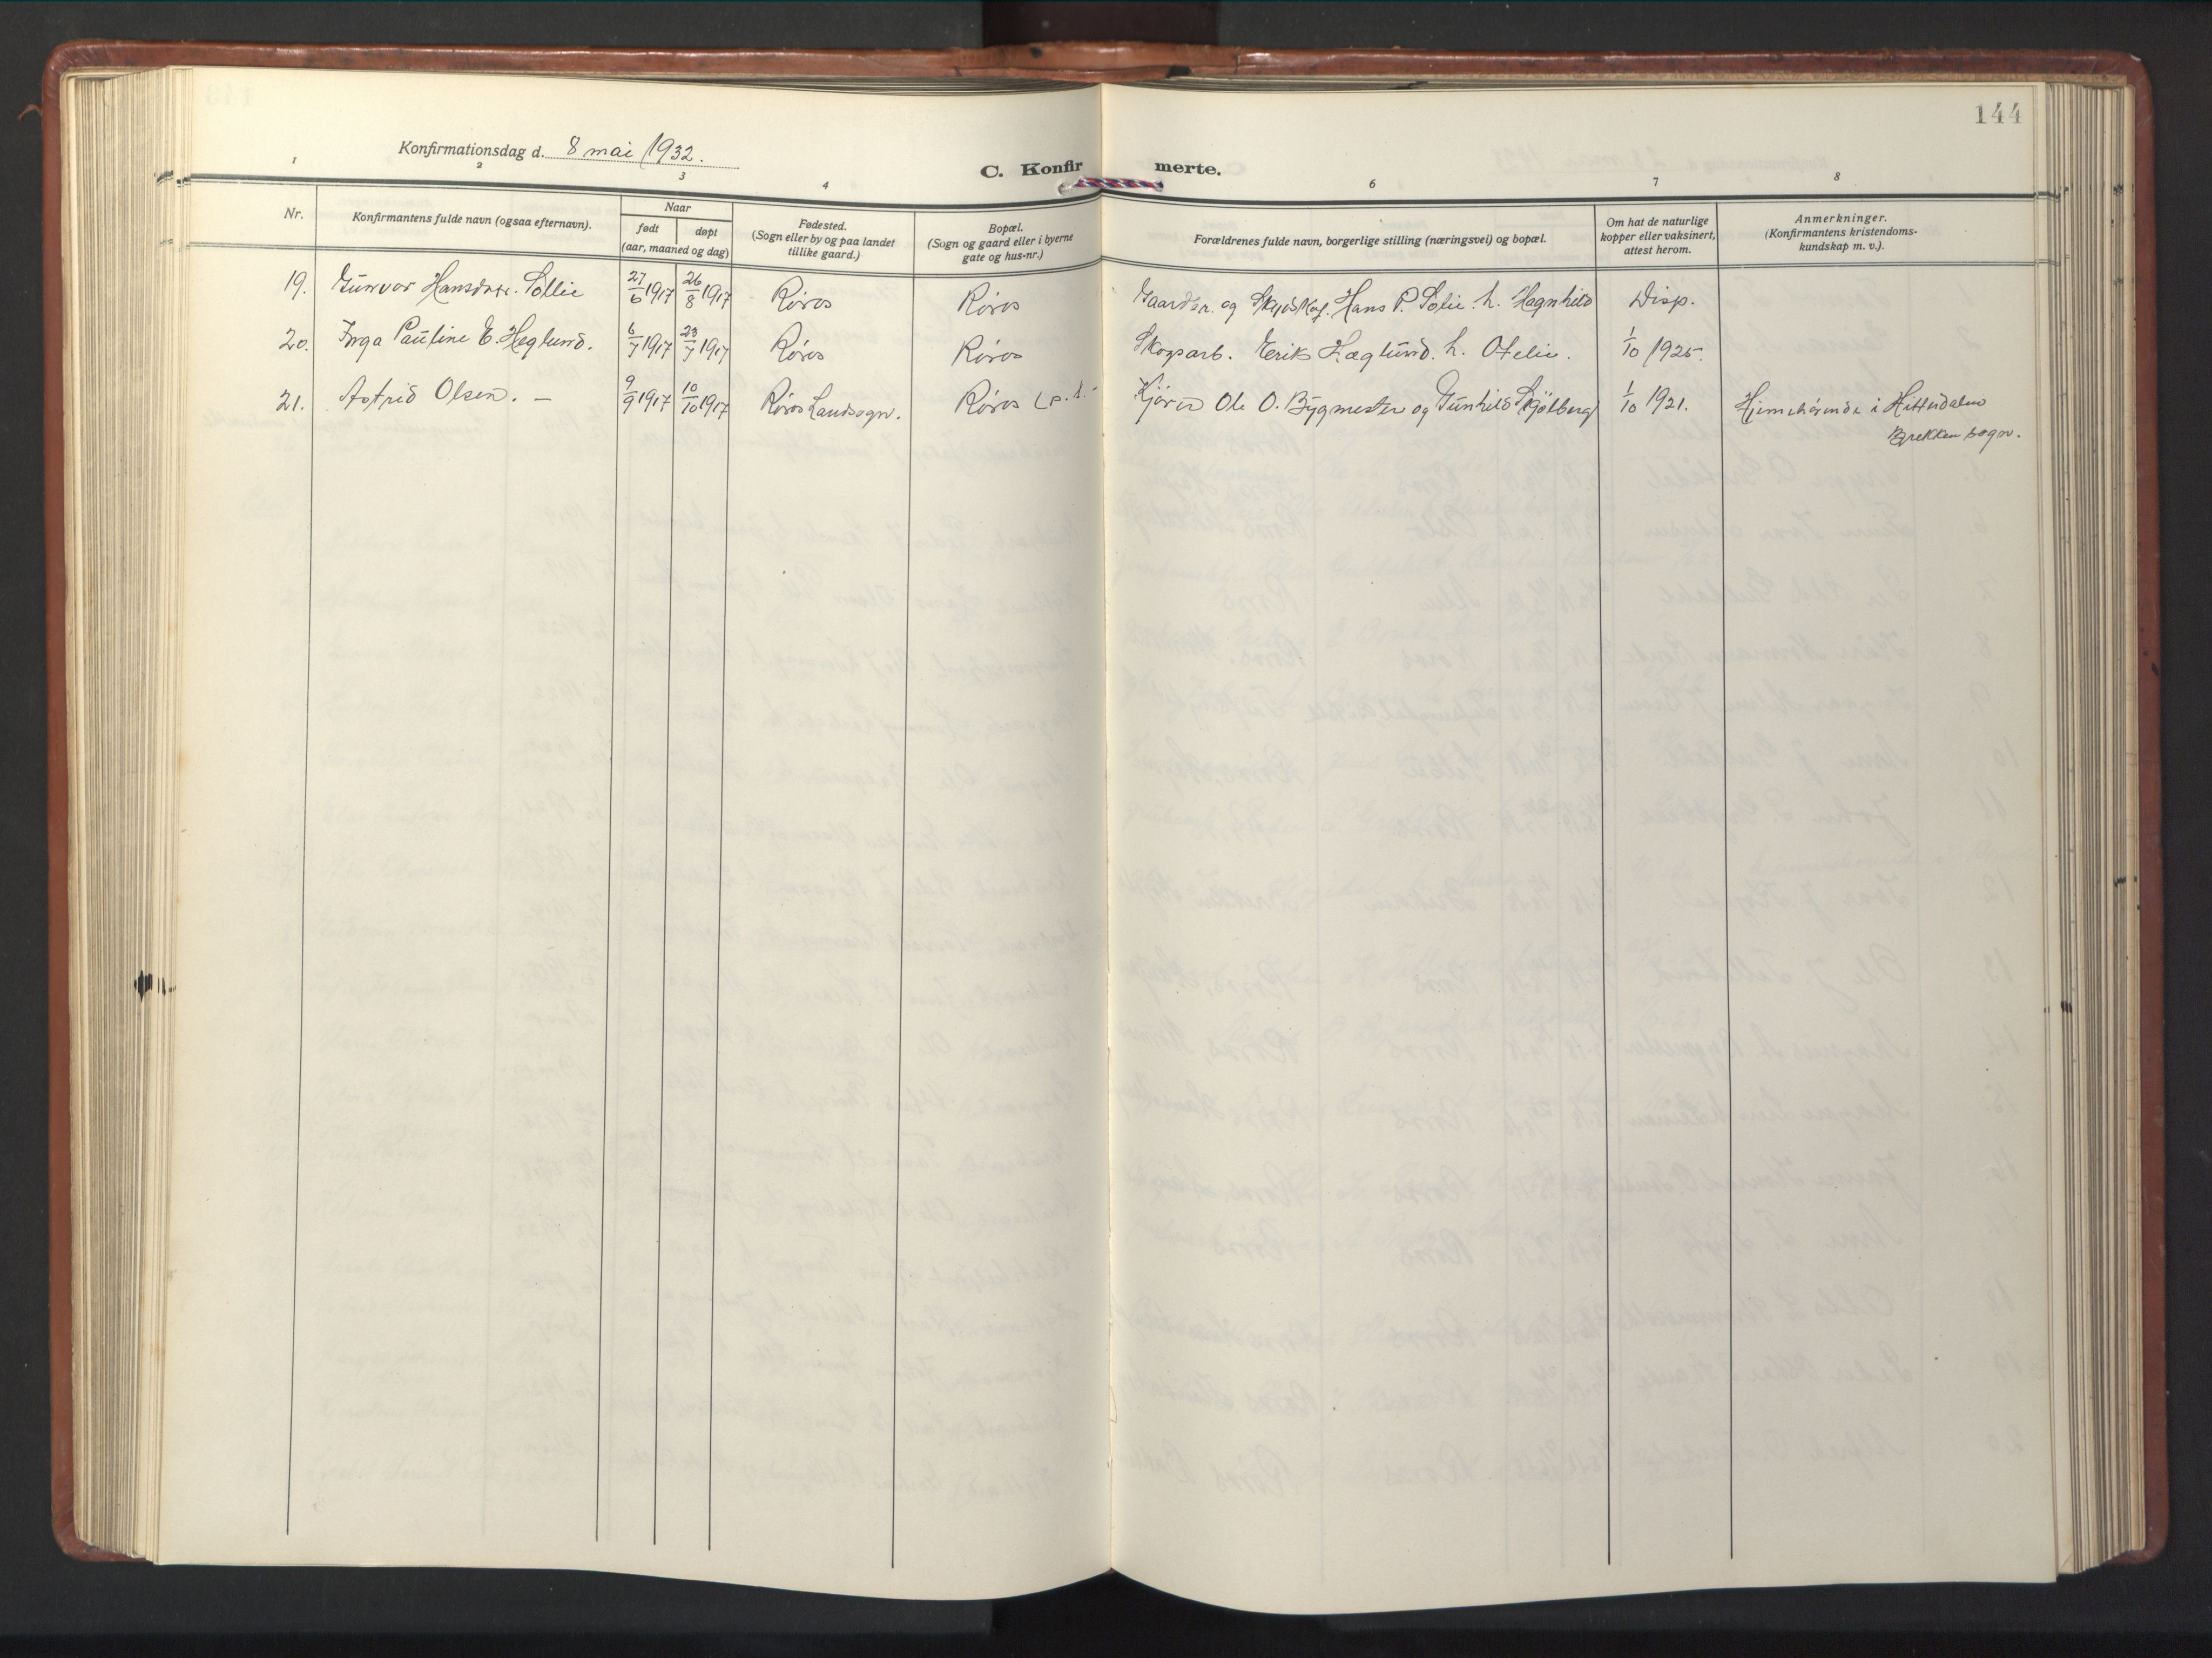 144
Konfirmationsdag d. 8 mai 1932.
C. Konfirmerte.
1 2 3 4 6 7 8
Nr.
Konfirmantens fulde navn (ogsaa efternavn).
Naar
født døpt
(aar, maaned og dag)
Fødested.
(Sogn eller by og paa landet
tillike gaard.)
Bopæl.
(Sogn og gaard eller i byerne
gate og hus-nr.)
Forældrenes fulde navn, borgerlige stilling (næringsvei) og bopæl.
Om hat de naturlige
kopper eller vaksinert,
attest herom.
Anmerkninger.
(Konfirmantens kristendoms-
kundskap m. v.).
19. Gunvor Hansdatr. Sollie 27/6 1917 26/8 1917 Røros Røros Gaardbr. og Hans P. Solie. h. Hagnhild Disp.
20. Inga Pauline E. Heglund. 6/7 1917 23/7 1917 Røros Røros Skogsarb. Erik Hæglund. h. Otelie. 1/10 1925.
21. Astrid Olsen. — 9/9 1917 10/10 1917 Røros Landsogn. Røros (p.t. Ole O. Bygmester og Gunhild Skjølberg 1/10 1921. Hjemehørende i Hitterdalen
Brekken sogn.